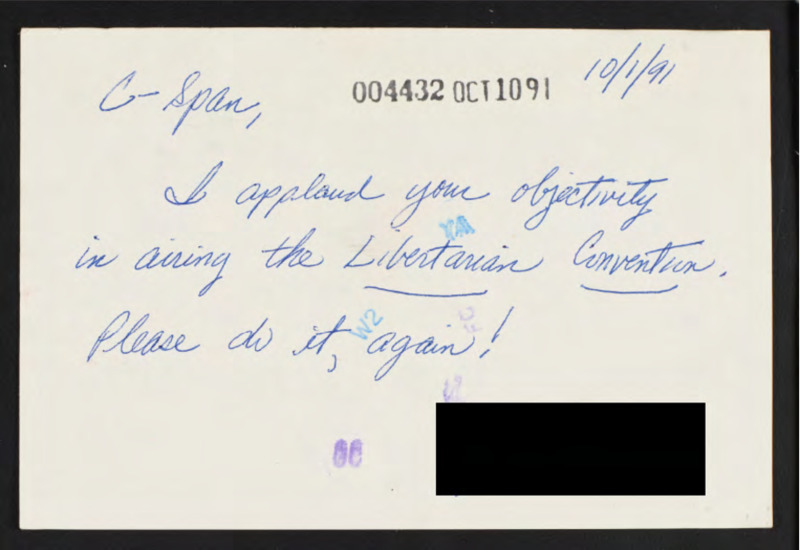 10/1/91
C-Span,
004432 OCT 10 91
I applaud your objectivity
in airing the Libertarian Convention.
Please do it, again!
W2
00